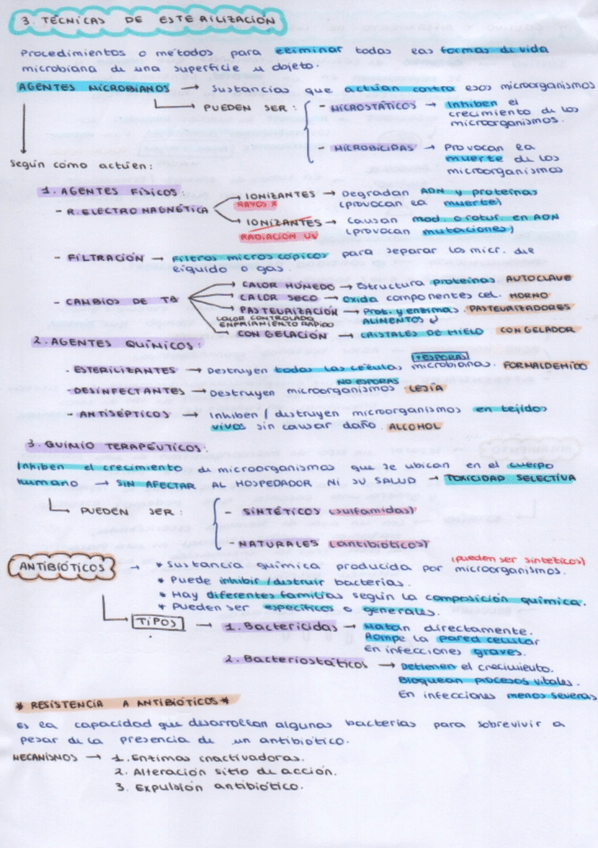 3. TÉCNICAS DE ESTERILIZACIÓN
Procedimientos o métodos para eliminar todas las formas de vida
microbiana de una superficie u objeto.
AGENTES MICROBIANOS → Sustancias que actúan contra esos microorganismos
→ PUEDEN SER:
- MICROSTÁTICOS → Inhiben el
crecimiento de los
microorganismos.
- MICROBICIDAS → Provocan la
muerte de los
microorganismos
Según como actúen:
1. AGENTES FÍSICOS:
- R. ELECTROMAGNÉTICA
→ IONIZANTES → Degradan ADN y proteínas
RAYOS X (provocan la muerte)
→ IONIZANTES → Causan mod. o rotur. en ADN
RADIACIÓN UV (provocan mutaciones)
- FILTRACIÓN → Filtros microscópicos para separar la micr. del
líquido o gas.
- CAMBIOS DE Tª
→ CALOR HÚMEDO → Estructura proteínas. AUTOCLAVE
→ CALOR SECO → Oxida componentes cel. HORNO
→ PASTEURIZACIÓN → Prot. y enzimas. PASTEURIZADORES
CALOR CONTROLADO, ALIMENTOS
ENFRIAMIENTO RÁPIDO
→ CONGELACIÓN → CRISTALES DE HIELO CONGELADOR
2. AGENTES QUÍMICOS:
+ESPORAS
- ESTERILIZANTES → Destruyen todas las células microbianas. FORMALDEHÍDO
NO ESPORAS
- DESINFECTANTES → Destruyen microorganismos LEJÍA
- ANTISÉPTICOS → Inhiben / destruyen microorganismos en tejidos
vivos sin causar daño. ALCOHOL
3. QUIMIO TERAPÉUTICOS:
Inhiben el crecimiento de microorganismos que se ubican en el cuerpo
humano → SIN AFECTAR AL HOSPEDADOR NI SU SALUD → TOXICIDAD SELECTIVA
→ PUEDEN SER:
- SINTÉTICOS (sulfamidas)
- NATURALES (antibióticos)
(pueden ser sintéticos)
ANTIBIÓTICOS → * Sustancia química producida por microorganismos.
• Puede inhibir / destruir bacterias.
* Hay diferentes familias según la composición química.
* Pueden ser específicos o generales.
→ TIPOS → 1. Bactericidas → Matan directamente.
Rompe la pared celular
En infecciones graves.
2. Bacteriostáticos → Detienen el crecimiento.
Bloquean procesos vitales.
En infecciones menos severas
* RESISTENCIA A ANTIBIÓTICOS *
Es la capacidad que desarrollan algunas bacterias para sobrevivir a
pesar de la presencia de un antibiótico.
MECANISMOS → 1. Enzimas inactivadoras.
2. Alteración sitio de acción.
3. Expulsión antibiótico.